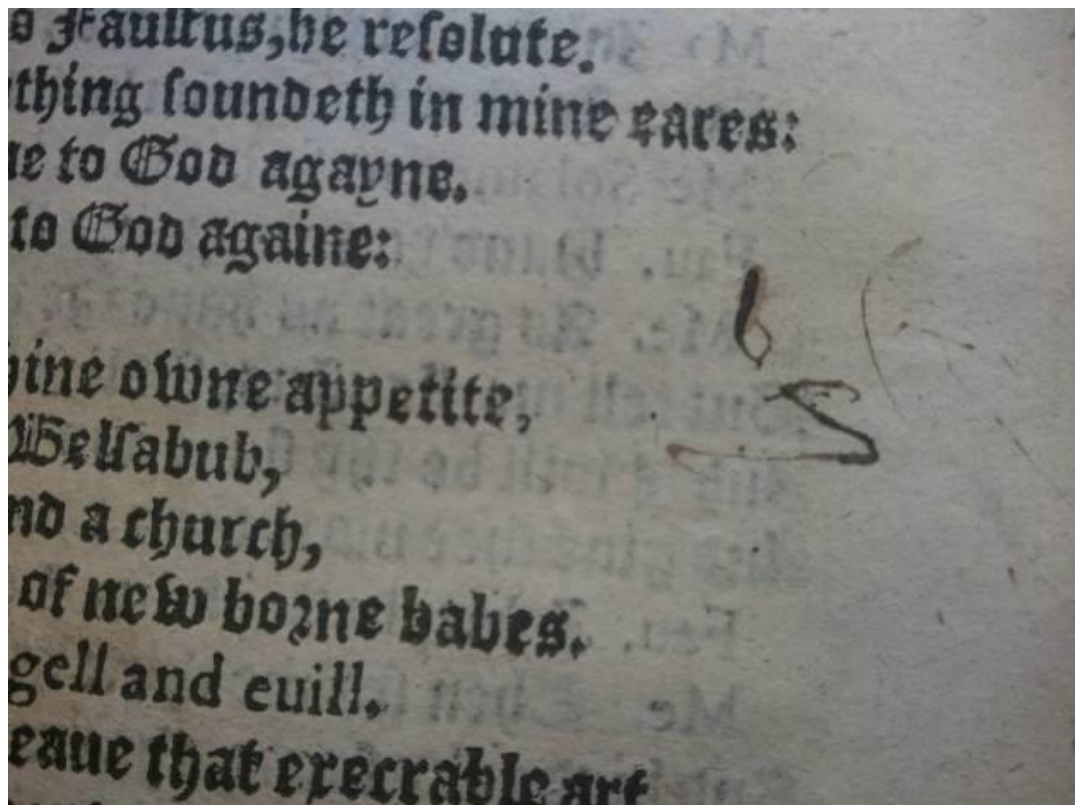 o Fauſtus,be reſolute.
thing ſoundeth in mine eares:
ne to God agayne.
to God againe:
hine owne appetite,
Belſabub,
nd a church,
of new borne babes.
gell and euill.
eaue that execrable art